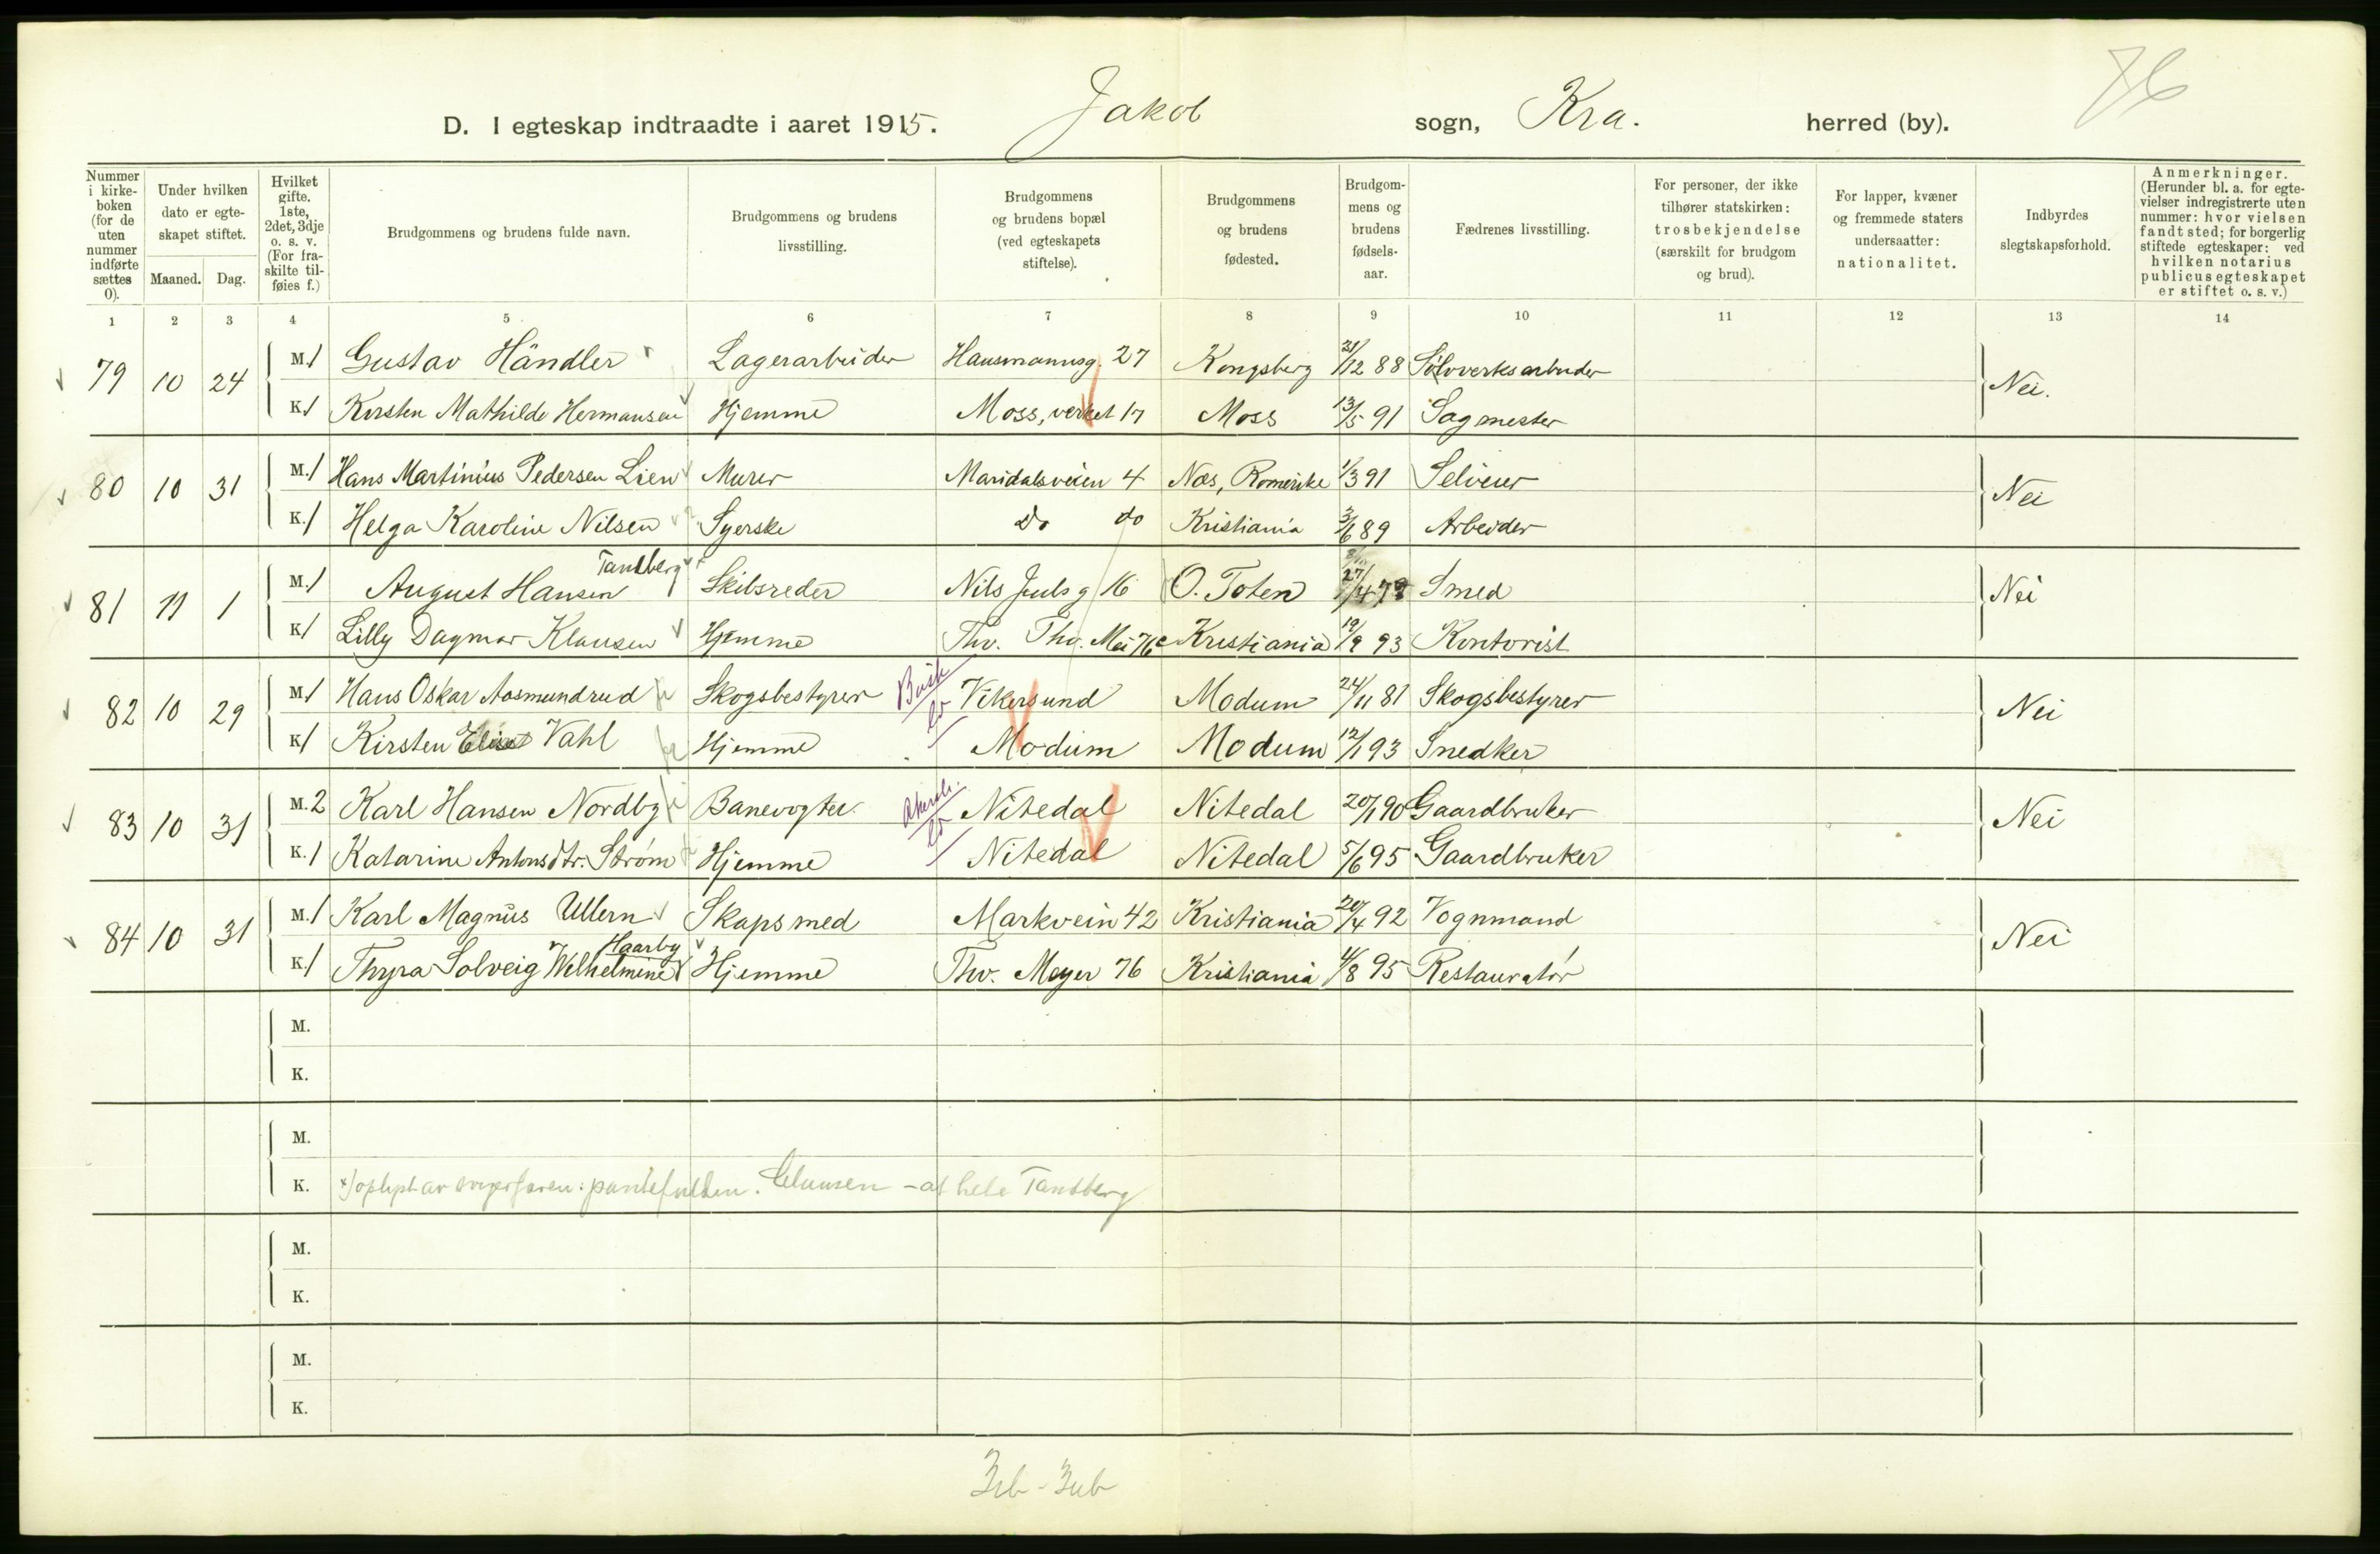 76
D. I egteskap indtraadte i aaret 1915. Jakob sogn, Kra. herred (by).
Nummer i kirke- boken (for de uten nummer indførte sættes 0).
Under hvilken dato er egte- skapet stiftet.
Maaned. Dag.
Hvilket gifte. 1ste, 2det, 3dje o. s. v. (For fra- skilte til- føies f.)
Brudgommens og brudens fulde navn.
Brudgommens og brudens livsstilling.
Brudgommens og brudens bopæl (ved egteskapets stiftelse).
Brudgommens og brudens fødested.
Brudgom- mens og brudens fødsels- aar.
Fædrenes livsstilling.
For personer, der ikke tilhører statskirken: trosbekjendelse (særskilt for brudgom og brud).
For lapper, kvæner og fremmede staters undersaatter: nationalitet.
Indbyrdes slegtskapsforhold.
Anmerkninger. (Herunder bl. a. for egte- vielser indregistrerte uten nummer: hvor vielsen fandt sted; for borgerlig stiftede egteskaper: ved hvilken notarius publicus egteskapet er stiftet o. s. v.)
1 2 3 4 5 6 7 8 9 10 11 12 13 14
79 10 24 M. 1 Gustav Händler Lagerarbeider Hausmannsg. 27 Kongsberg 21/12 88 Sølvverksarbeider Nei.
K. 1 Kirsten Mathilde Hermansen Hjemme Moss, verket 17 Moss 13/5 91 Sagmester
80 10 31 M. 1 Hans Martinius Pedersen Lien Murer Maridalsveien 4 Næs, Romerike 1/3 91 Selveier Nei
K. 1 Helga Karoline Nilsen Syerske Do do Kristiania 3/6 89 Arbeider
Tandberg
81 11 1 M. 1 August Hansen Skibsreder Nils Juels g 16 O. Toten 27/4 72 Smed Nei
K. 1 Lilly Dagmar Klausen Hjemme Thv. Thv. Mei 76c Kristiania 19/9 93 Kontorist
82 10 29 M. 1 Hans Oskar Aasmundrud Skogsbestyrer Busk Vikersund Modum 24/11 81 Skogsbestyrer Nei
K. 1 Kirsten Eliset Vahl Hjemme Modum Modum 12/1 93 Snedker
83 10 31 M. 2 Karl Hansen Nordby Banevogter Akersh. Nitedal Nitedal 20/1 90 Gaardbruker Nei
K. 1 Katarine Antonsdtr. Strøm Hjemme Nitedal Nitedal 5/6 95 Gaardbruker
84 10 31 M. 1 Karl Magnus Ullern Skapsmed Markvein 42 Kristiania 20/4 92 Vognmand Nei
Haarby
K. 1 Thyra Solveig Wilhelmine Hjemme Thv. Meyer 76 Kristiania 4/8 95 Restauratør
M.
K.
M.
K. x) oplyst av svigerfaren: Clausen - at hete Tandberg
M.
K.
M.
K.